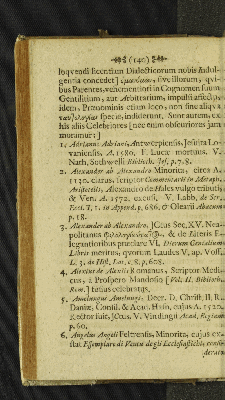 (140)
loqvendi licentiam Dialecticorum nobis Indul-
gentia concedet] ἐμφατικῶς, five illorum, qvi-
bus Parentes, vehementiori in Cognomen suum
Gentilitium, aut Arbitrarium, impulsi affectu,
idem, Prænominis etiam loco, non sine aliqva
specie, indiderunt. Sunt autem, ex
his aliis Celebriores [nec enim obscuriores jam
moramur:]
1. Adrianus Adriani, Antwerpiensis, Jesuita Lo-
vaniensis, A. 1580. F. Lucæ mortuus. V.
Nath. Sothwelli Biblioth. Jes. p. 7. 8.
2. Alexander ab Alexandro Minorita, circa A.
1130. clarus. Scriptor Commentarii in Metaph.
Aristotelis, Alexandro de Hales vulgo tributi,
& Ven. A. 1572. excusi. V. Labb. de Scr.
Eccl. T. 1. in Append. p. 686. & Olearii Abacum
p. 18.
3. Alexander ab Alexandro, JCtus Sec. XV. Nea-
politanus & de literis E-
legantioribus præclare VI. Dierum Genialium
Libris meritus, qvorum Laudes V. ap. Voss.
L. 3. de Hist. Lat. c. 8. p. 608.
4. Alexius de Alexiis Romanus, Scriptor Medi-
cus, à Prospero Mandosio [Vol. II. Biblioth.
Rom.] fusius celebratus.
5. Amelungus Amelungi, Decr. D. Christ. II. R.
Daniæ, Consil. & Acad. Hafn. cujus A. 1520.
Rector fuit, JCtus. V. Vindingii Acad. Regiam
p. 60.
6. Angelus Angeli Feltrensis, Minorita, cujus ex-
stat Esemplare di Penna degli Ecclesiastichi consi-